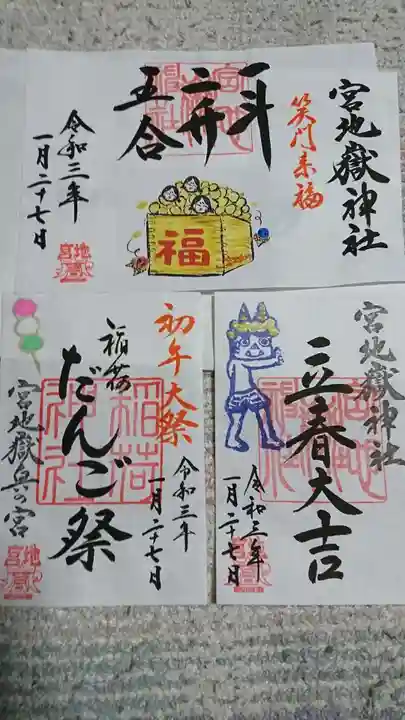 宮地嶽神社
笑門来福
一斗
二升
五合
令和三年
一月二十七日
福
宮地嶽
初午大祭
稲荷
だんご祭
稲荷神社
令和三年
一月二十七日
宮地嶽奥の宮
宮地嶽
宮地嶽神社
立春大吉
令和三年
一月二十七日